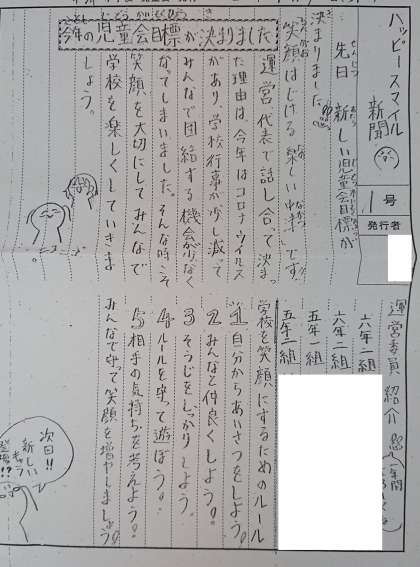 ハッピースマイル新聞
1号
発行者
今年の児童会目標が決まりました
先日、新しい児童会目標が
決まりました。
笑顔はじける 楽しい仲
です。
運営代表で話し合って決まっ
た理由は、今年はコロナウイルス
があり、学校行事が少し減って
みんなで団結する機会が少なく
なってしまいました。そんな時こそ
笑顔を大切にしてみんなで
学校を楽しくしていきま
しょう。
運営委員紹介
六年二組
六年一組
五年二組
五年一組
学校を笑顔にするためのルール
1 自分からあいさつをしよう。
2 みんなと仲良くしよう。
3 そうじをしっかりしよう。
4 ルールを守って遊ぼう。
5 相手の気持ちを考えよう。
みんなで守って笑顔を増やしましょう!
次回!!
新しい
登場!?